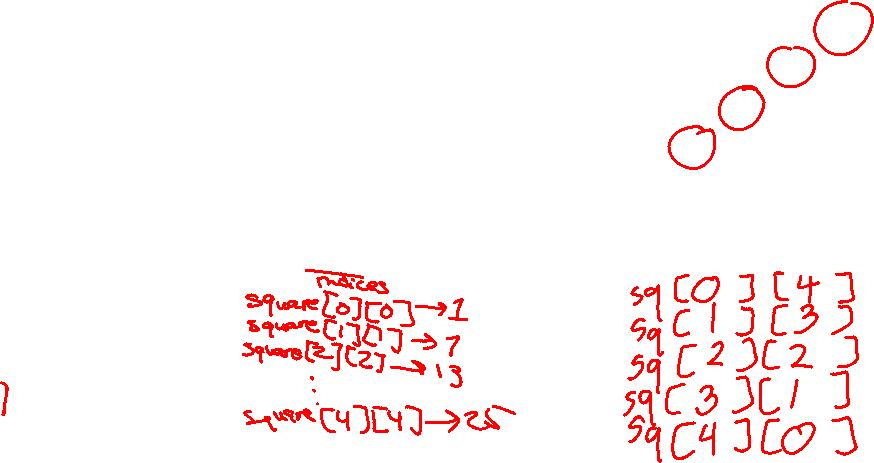 indices
square[0][0]→1
square[1][1]→7
square[2][2]→13
⋮
square[4][4]→25
]
sq[0][4]
sq[1][3]
sq[2][2]
sq[3][1]
sq[4][0]